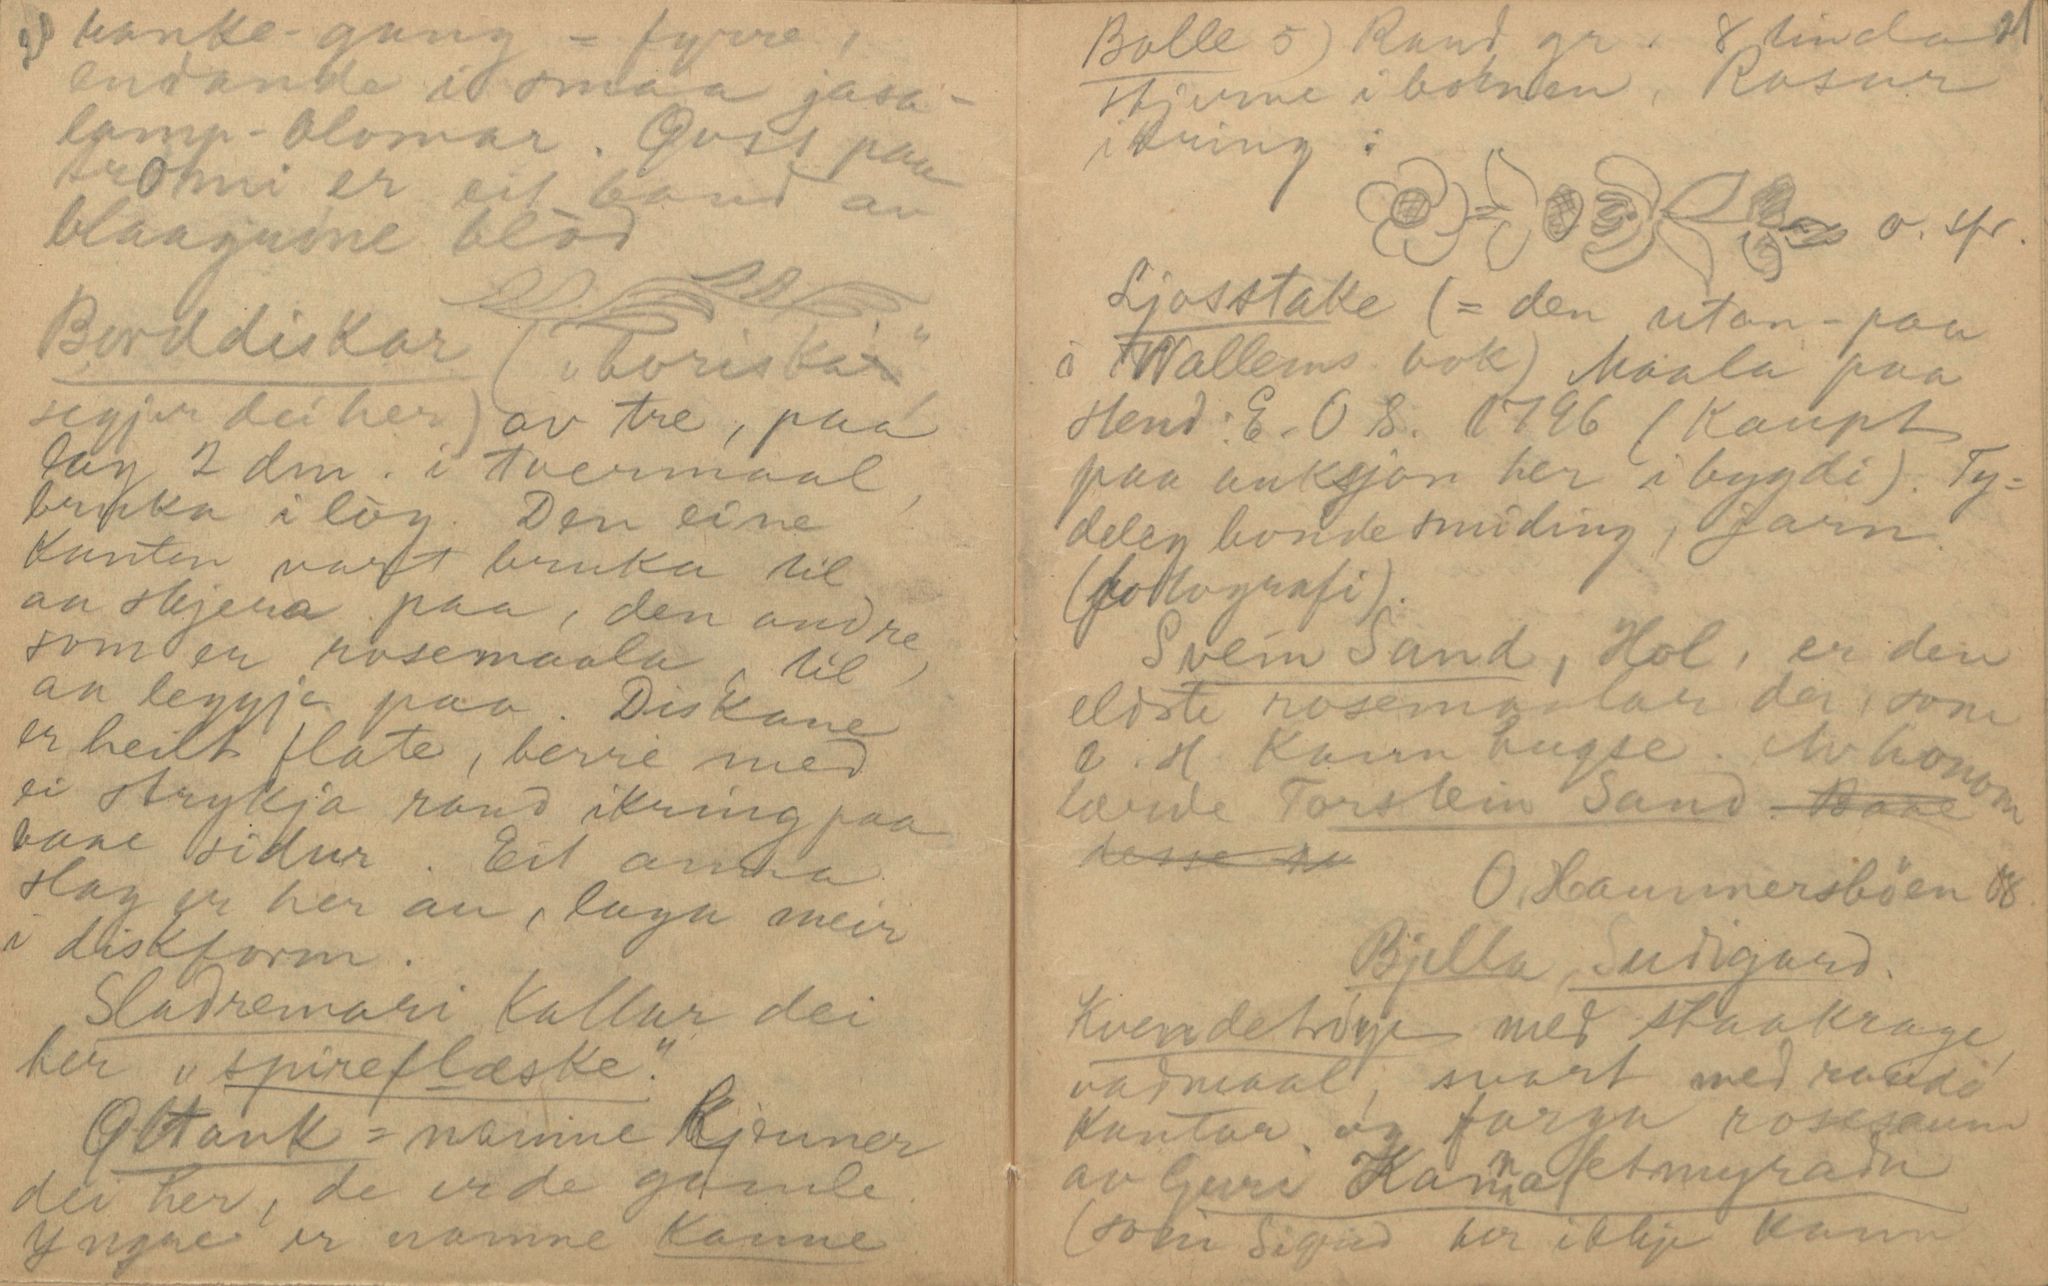 hanke-gang = fyrre,
endande i smaa jasa-
lamp-blomar. Øvst paa
tromi er eit band av
blaagrøne blòd
Borddiskar („boriskar"
segjer dei her) av tre, paa
lag 2 dm. i tvermaal,
bruka i lòg. Den eine
Kanten vart bruka til
aa skjera paa, den andre,
som er rosemaala, til
aa leggja paa. Diskane
er heilt flate, berre med
ei strykja rand ikring paa
baae sidur. Eit anna
slag er her au, laga meir
i diskform.
Sladremari kallar dei
her „spireflæske".
Ottank = namne kjenner
dei her, de er de gamle.
Yngre er namne Kanne
21
Bolle 5) Rand gr. 8 tinda
stjerne i botnen, Rosur
ikring:
o. spr.
Ljosstake (= den utan-paa
i Wallems bok) Maala paa
stend: E. O S. 1796 (Kaupt
paa auksjon her i bygdi). Ty=
deleg bondesmiding, jarn.
(fotografi).
Svein Sand, Hol, er den
eldste rosemaalar dei, som
e. H. Kann hugse. Av honom
lærde Torstein Sand. Baae
desse
O. Hammersbøen 78.
Bjella, Sudigard.
Kvendetrøye med staakrage,
vadmaal, svart med raude
Kantar og farga rosesaum
av Guri Kannaletmyradn
(som Sigrid her ikkje Kann